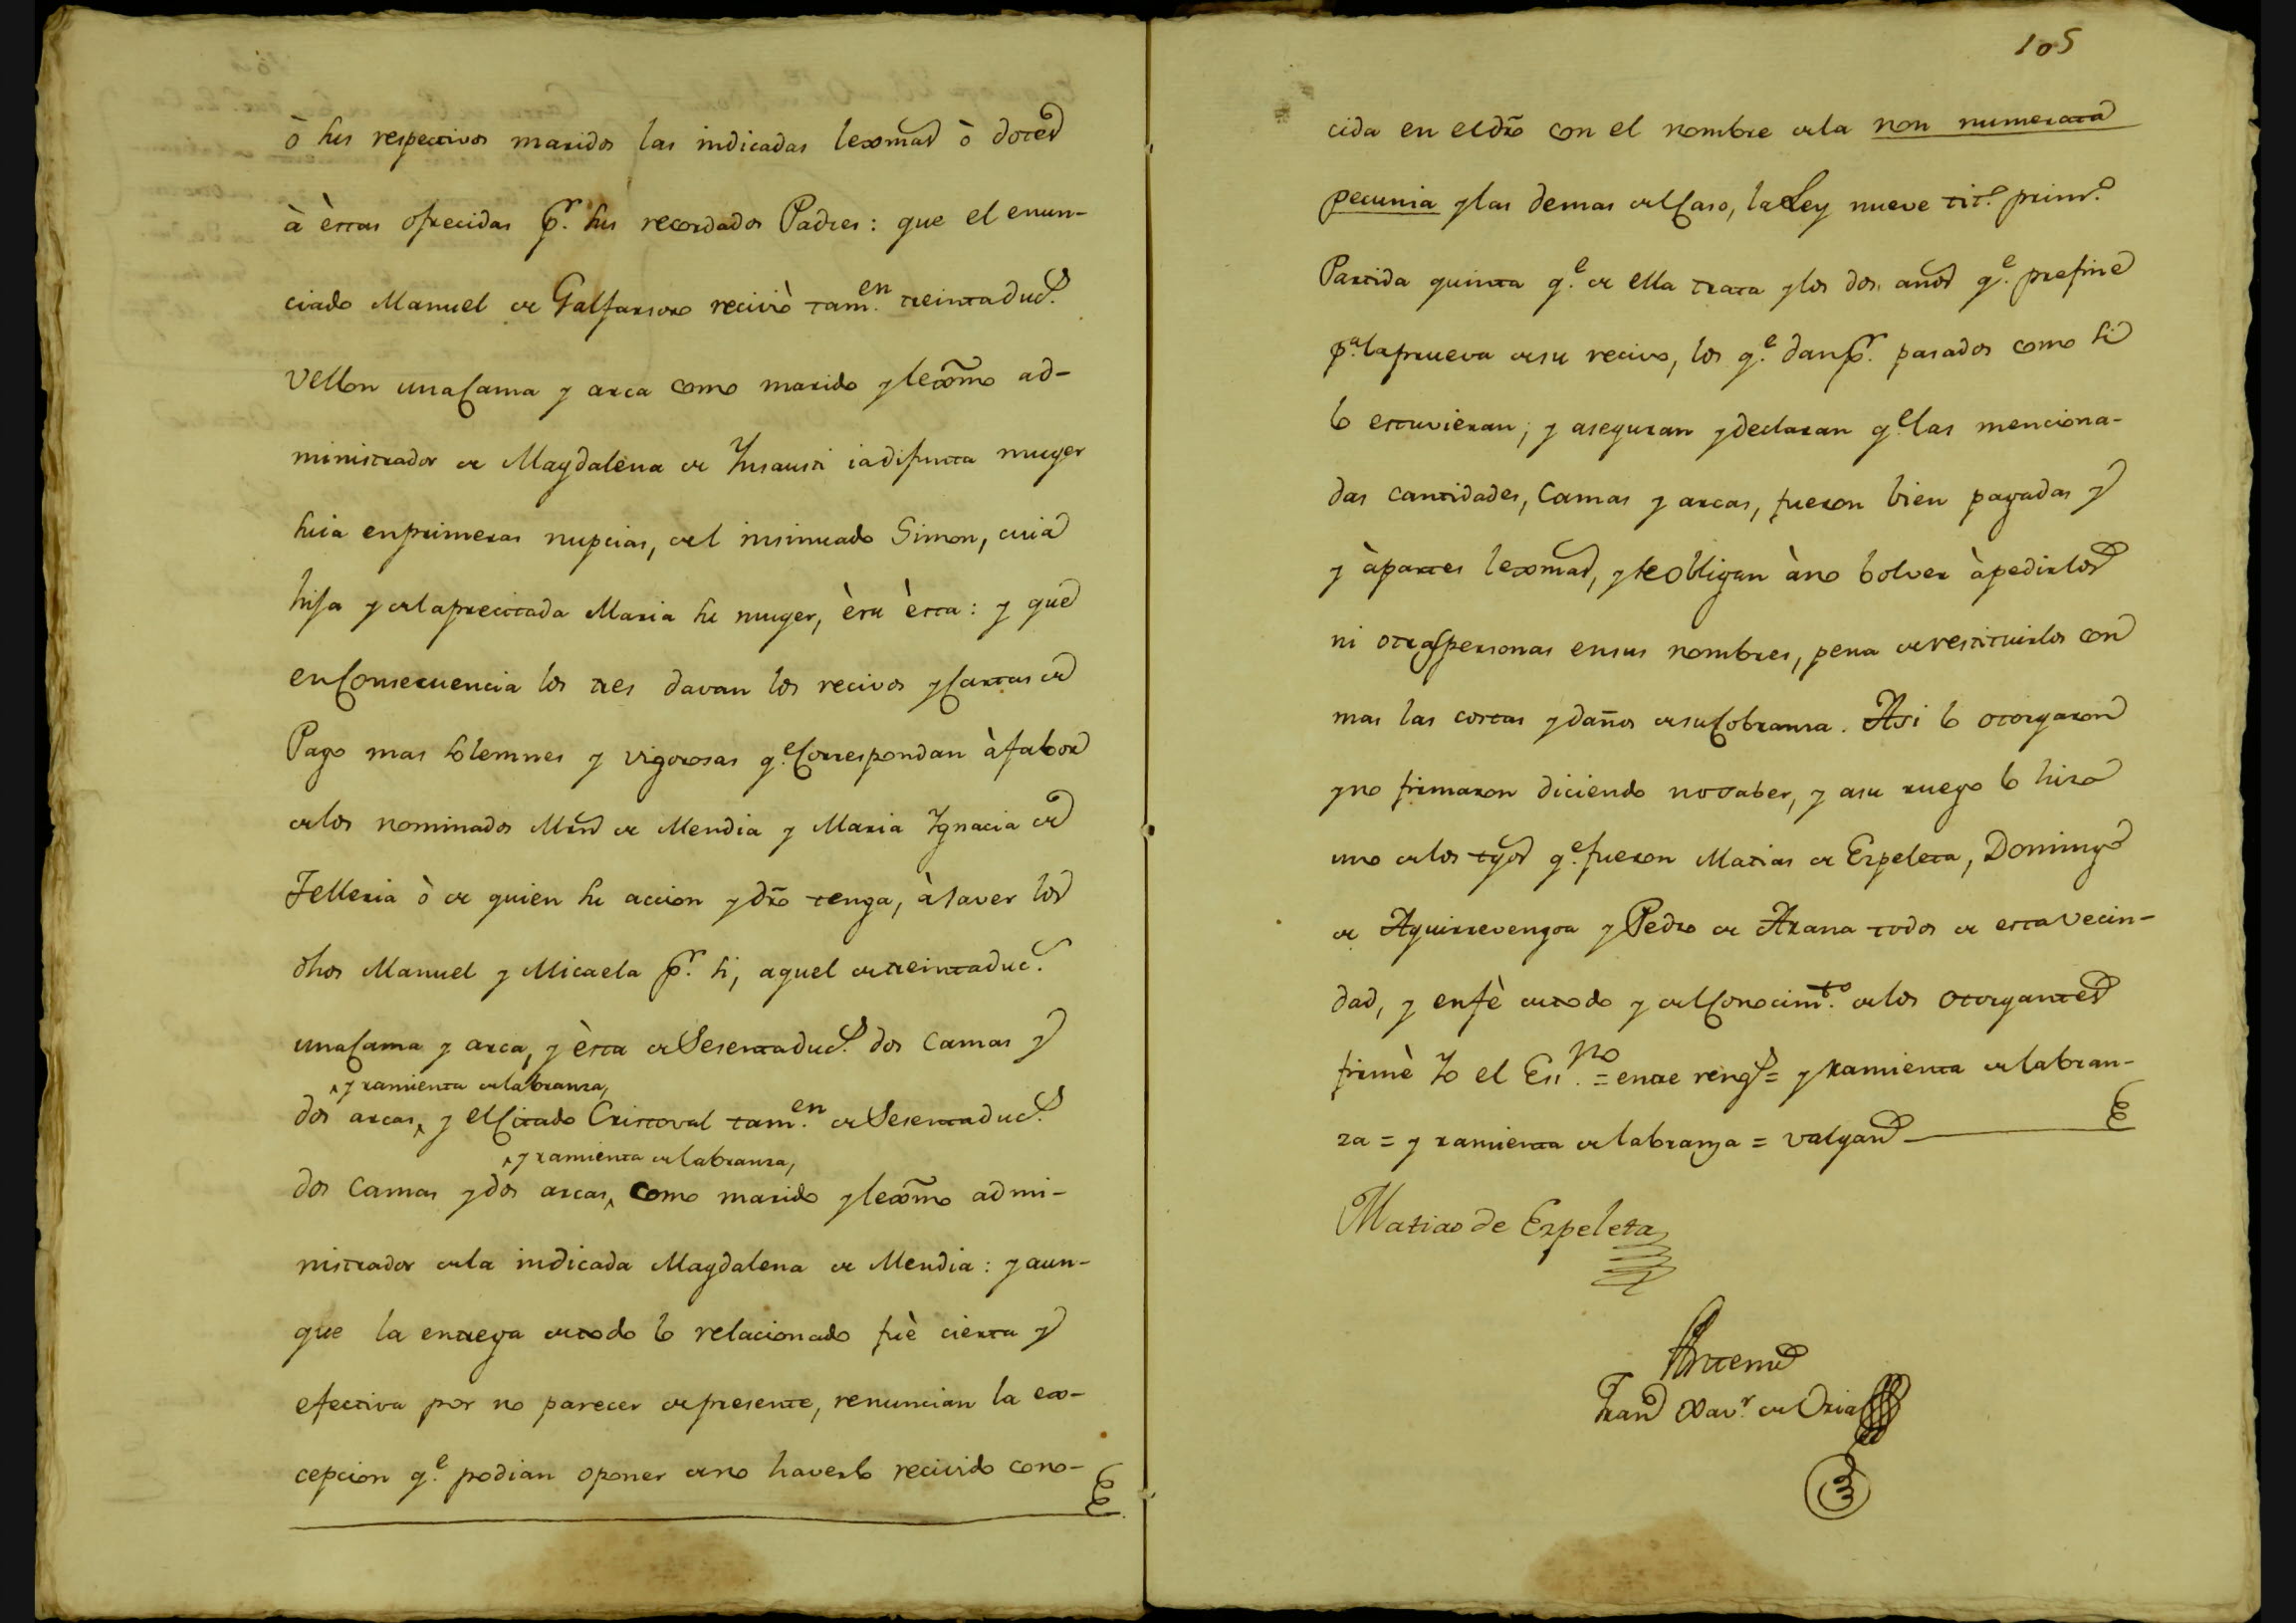 ò sus respectivos maridos las indicadas lexmas ò dotes
à èstas ofrecidas pr. sus recordados Padres: que el enun-
ciado Manuel de Galfarsoro reciviò tamen. treinta ducs.
Vellon una Cama y arca como marido y lexmo ad-
ministrador de Magdalena de Insausti ia difunta muger
suia en primeras nupcias, del insinuado Simon, cuia
hija y de la precitada Maria su muger, èra èsta: y que
en Consecuencia los tres davan los recivos y Cartas de
Pago mas solemnes y vigorosas qe. Correspondan à fabor
de los nominados Mrn de Mendia y Maria Ygnacia de
Telleria ò de quien su accion y dro tenga, à saver los
dhos Manuel y Micaela pr. si, aquel de treinta duc.
una Cama y arca, y èsta de Sesenta ducs. dos Camas y
y ramienta de labranza,
dos arcas, y el Citado Cristoval tamen. de Sesenta ducs.
y ramienta de labranza,
dos Camas y dos arcas, Como marido y lexmo admi-
nistrador de la indicada Magdalena de Mendia: y aun-
que la entrega de todo lo relacionado fuè cierta y
efectiva por no parecer de presente, renuncian la ex-
cepcion qe. podian oponer de no haverlo recivido cono-
105
cida en el dro con el nombre de la non numerata
pecunia y las demas del Caso, la Ley nueve tito. primo.
Partida quinta qe. de ella trata y los dos años qe. prefine
pa. la prueva de su recivo, los qe. dan pr. pasados como si
lo estuvieran; y aseguran y declaran qe. las menciona-
das cantidades, Camas y arcas, fueron bien pagadas y
y à partes lexmas, y se obligan à no bolver à pedirlos
ni otras personas en sus nombres, pena de restituirlos con
mas las costas y daños de su Cobranza. Asi lo otorgaron
y no firmaron diciendo no saber, y a su ruego lo hizo
uno de los tgos qe. fueron Matias de Ezpeleta, Domingo
de Aguirrevengoa y Pedro de Arana todos de esta Vecin-
dad, y en fè de todo y del Conocimto. de los otorgantes
firmè Yo el Essno. = entre rengs = y ramienta de labran-
za = y ramienta de labranza = valgan
Matias de Ezpeleta
Ante mi
Frano Xavr. de Oria